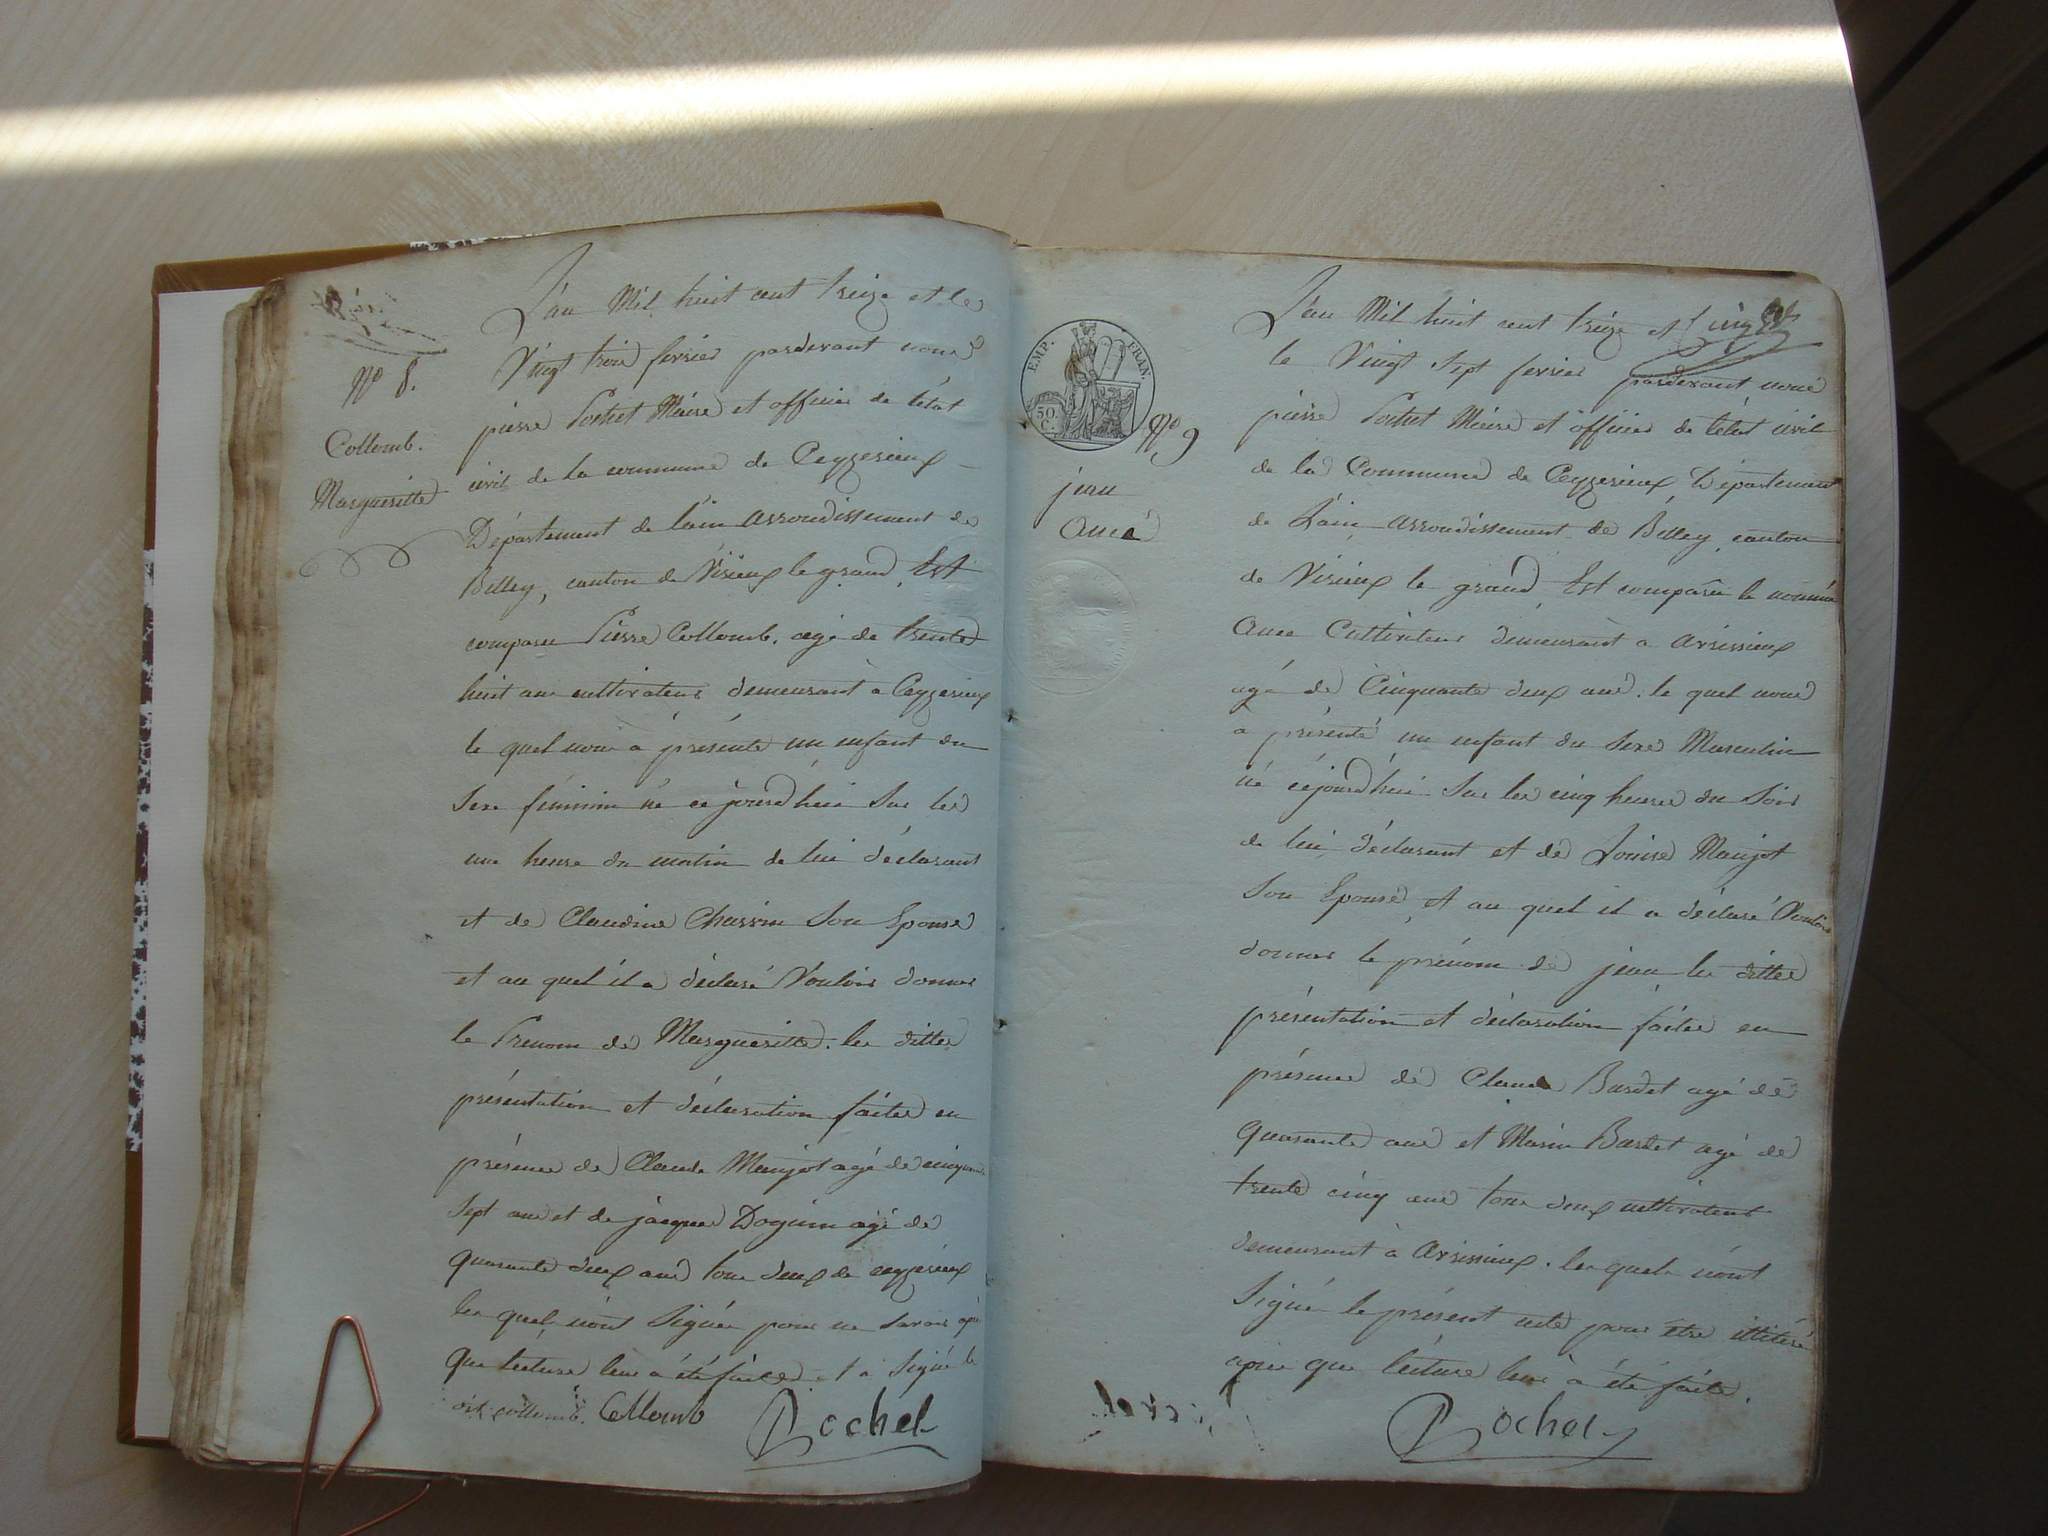 Nº 8.
Collomb.
Margueritte
L'an Mil huit cent treize et le
Vingt trois fevrier pardevant nous
pierre Pochet Maire et officier de l'état
civil de la commune de Ceyzerieux
Département de l'ain arrondissement de
Belley, canton de Virieux le grand, Est
comparu Pierre Collomb. agé de trente
huit ans cultivateur demeurant à Ceyzerieux
le quel nous à présenté un enfant du
Sexe féminin né ce jourd'hui Sur les
une heure du matin de lui déclarant
et de Claudine Chassin Son Epouse
et au quel il a déclaré Vouloir donner
le Prenom de Margueritte. les dittes
présentation et déclaration faites en
présence de Claude Maujot agé de cinquante
Sept ans et de jacques Doguin agé de
quarante deux ans tous deux de ceyzerieux
les quels n'ont Signés pour ne Savoir après
que lecture leur a été faite et a Signé le
dit collomb. Collomb Pochet
EMP. FRAN.
50.
C.
Nº 9
jean
Ancé
L'an Mil huit cent treize et
le Vingt Sept fevrier pardevant nous
pierre Pochet Maire et officier de l'état civil
de la Commune de Ceyzerieux Département
de L'ain arrondissement de Belley, canton
de Virieux le grand, Est comparu le nommé
Ance Cultivateur demeurant a avrissieux
agé de Cinquante deux ans. le quel nous
a présenté un enfant du Sexe Masculin
né cejourd'hui Sur les cinq heures du Soir
de lui déclarant et de Louise Maujot
Son Epouse, et au quel il a déclaré Vouloir
donner le prénom de jean les dittes
présentation et déclaration faites en
présence de Claude Bardet agé de
quarante ans et Marin Bardet agé de
trente cinq ans tous deux cultivateurs
demeurant à avrissieux. les quels n'ont
Signé le présent acte pour être illitéré
après que lecture leur à été faite.
Pochet